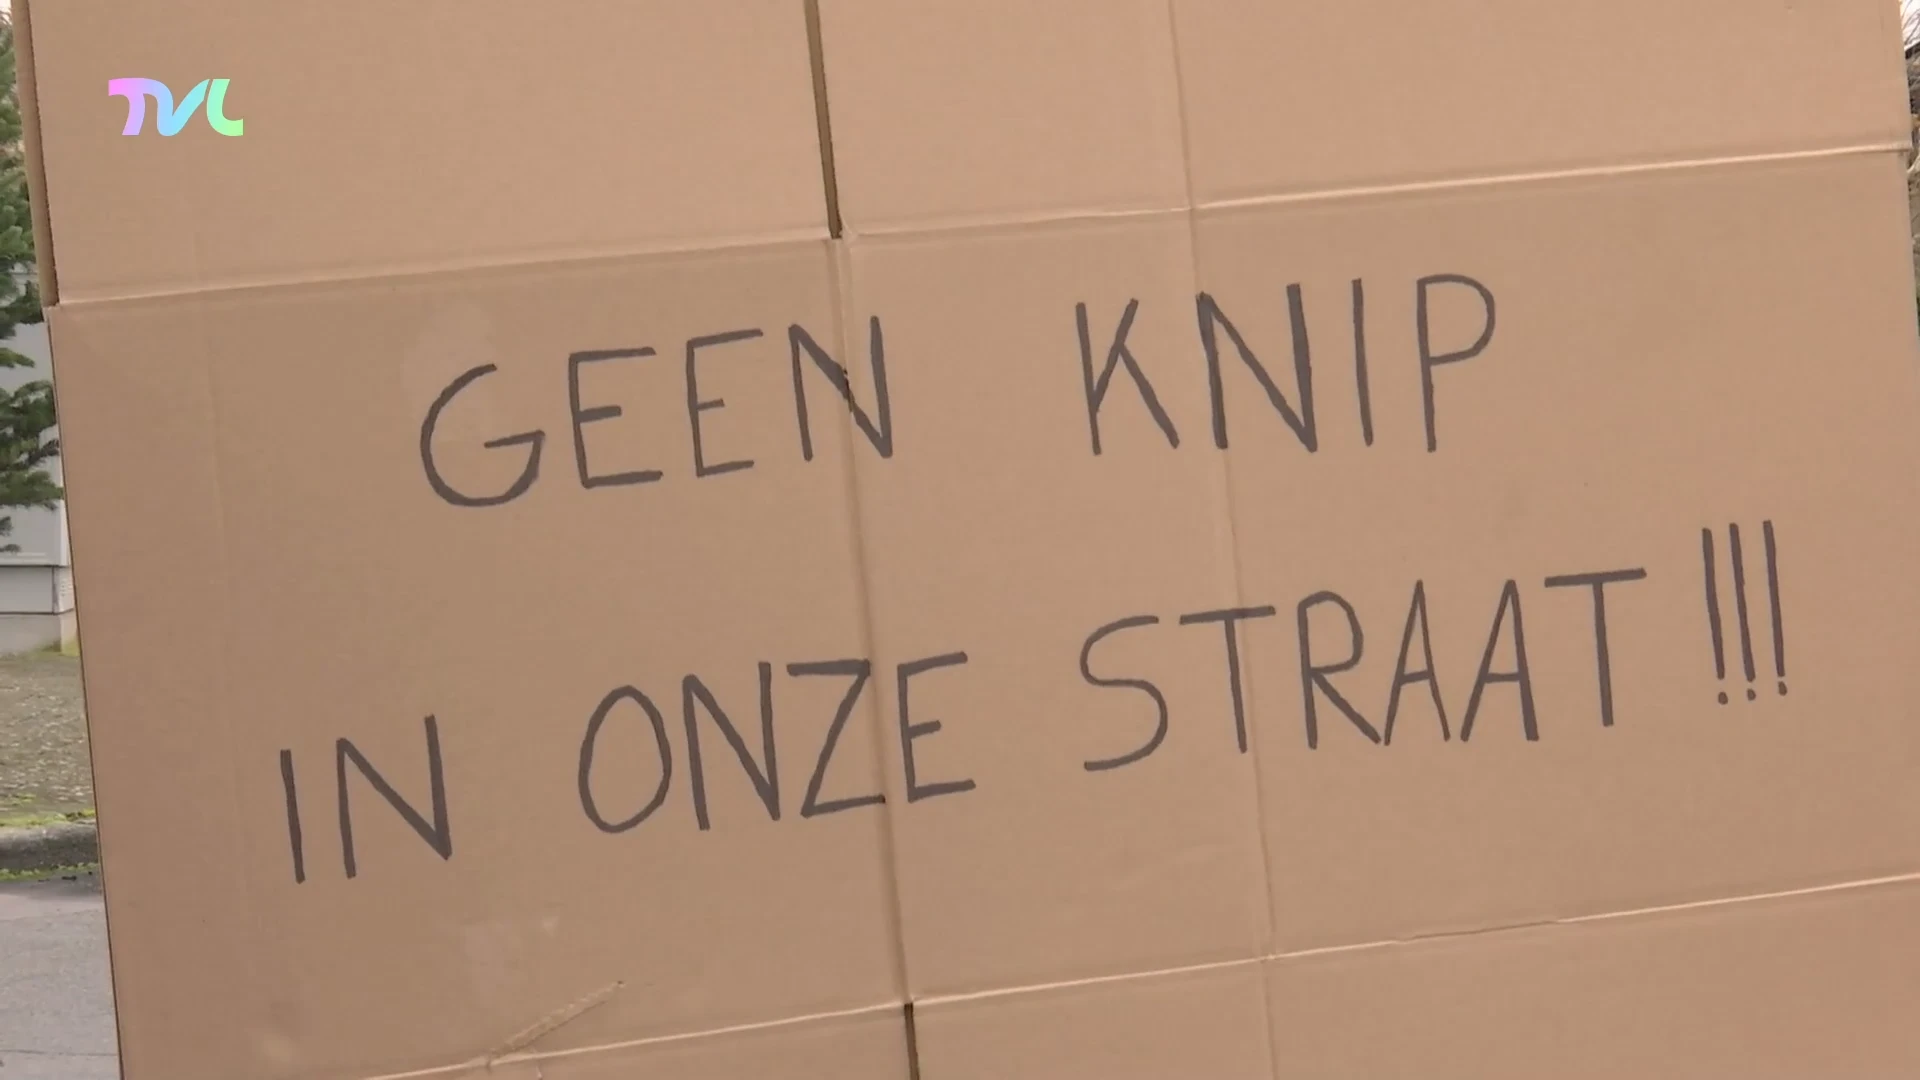 TVL
GEEN KNIP
IN ONZE STRAAT !!!